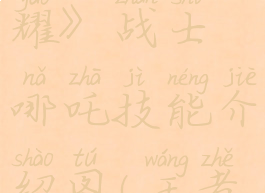 yào zhàn shì
耀》 战士
nǎ zhā jì néng jiè
哪吒技能介
shào tú wáng zhě
绍图(王者